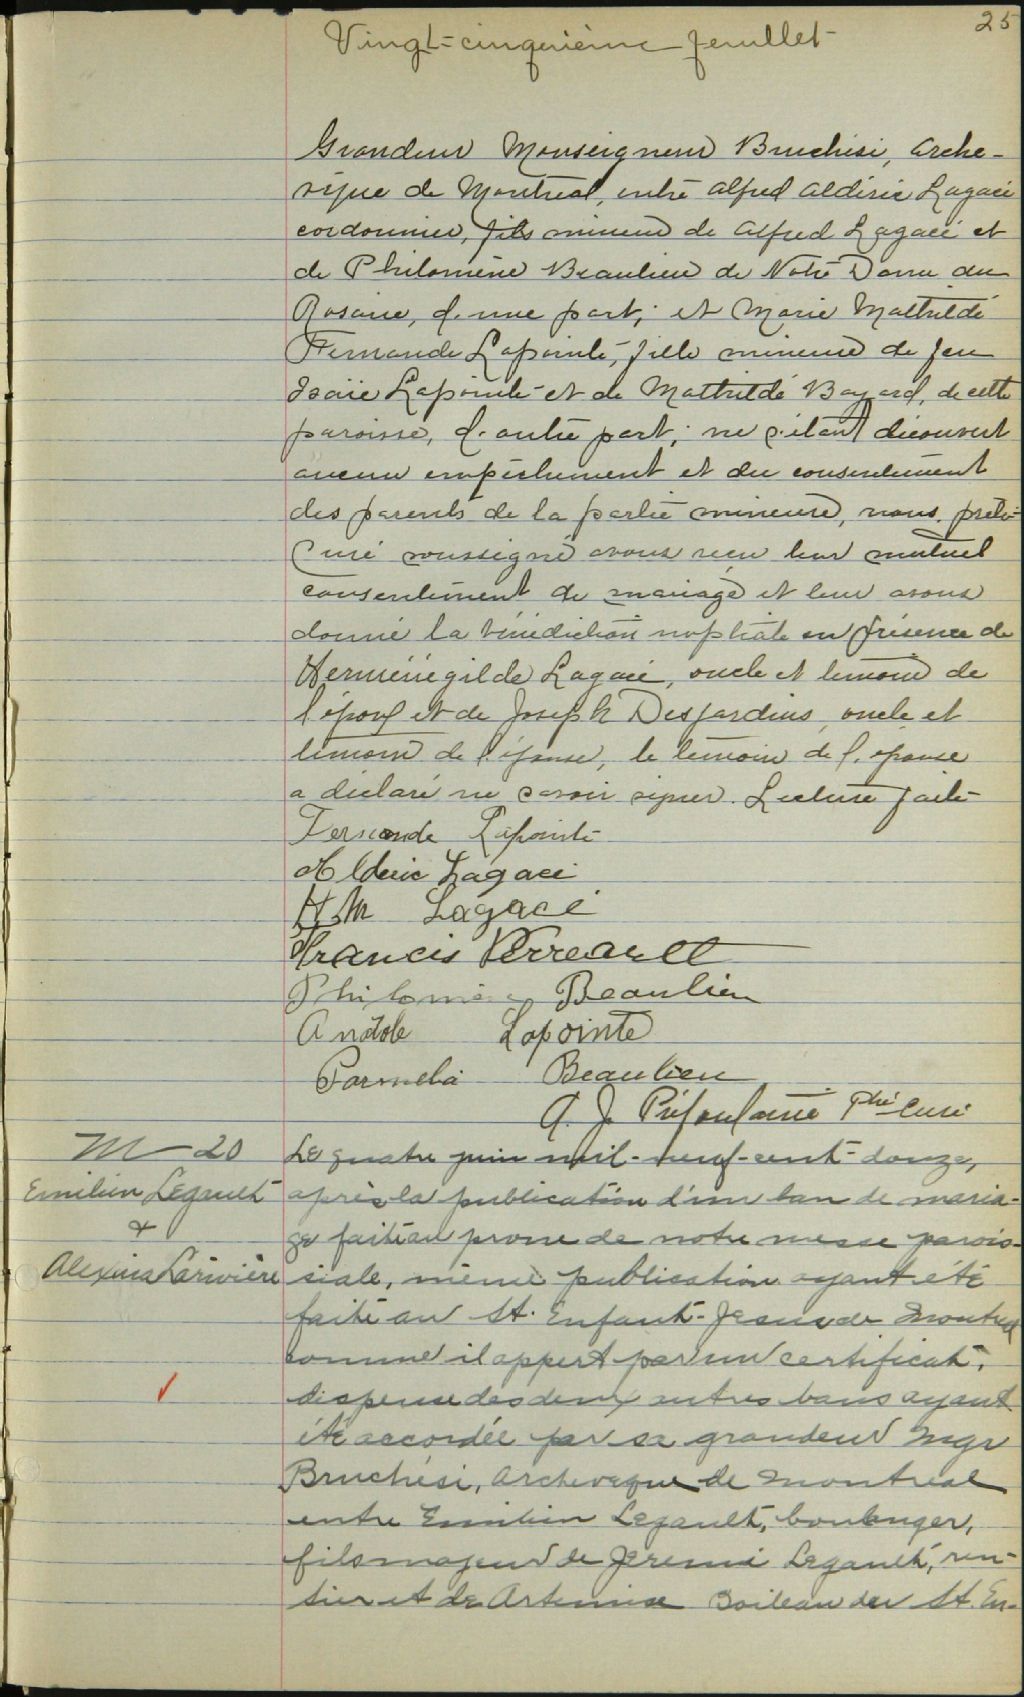 25
Vingt-cinquième feuillet
Grandeur Monseigneur Bruchési, arche-
vêque de Montréal, entre Alfred Aldéric Lagacé
cordonnier, fils mineur de Alfred Lagacé et
de Philomène Beaulieu de Notre Dame du
Rosaire, d'une part; et Marie Mathilde
Fernande Lapointe, fille mineure de feu
Isaïe Lapointe et de Mathilde Bayard, de cette
paroisse, d'autre part; ne s'étant découvert
aucun empêchement et du consentement
des parents de la partie mineure, nous, prêtre
Curé soussigné avons reçu leur mutuel
consentement de mariage et leur avons
donné la bénédiction nuptiale en présence de
Herménégilde Lagacé, oncle et témoin de
l'époux et de Joseph Desjardins, oncle et
témoin de l'épouse, le témoin de l'épouse
a déclaré ne savoir signer. Lecture faite
Fernande Lapointe
Alderic Lagacé
H M Lagacé
Francis Perreault
Philomène Beaulieu
Anatole Lapointe
Parmela Beaulieu
A. J. Préfontaine Ptre Curé
M - 20
Emilien Legault
&
Alexina Larivière
Le quatre juin mil-neuf-cent-douze,
après la publication d'un ban de maria-
ge faite au prone de notre messe parois-
siale, même publication ayant été
faite au St. Enfant-Jesus de Montreal
comme il appert par un certificat,
dispense des deux autres bans ayant
été accordée par sa grandeur Mgr
Bruchési, Archevêque de Montréal
entre Emilien Legault, boulanger,
fils majeur de Jeremi Legault, ren-
tier et de Artemise Boileau du St. En-